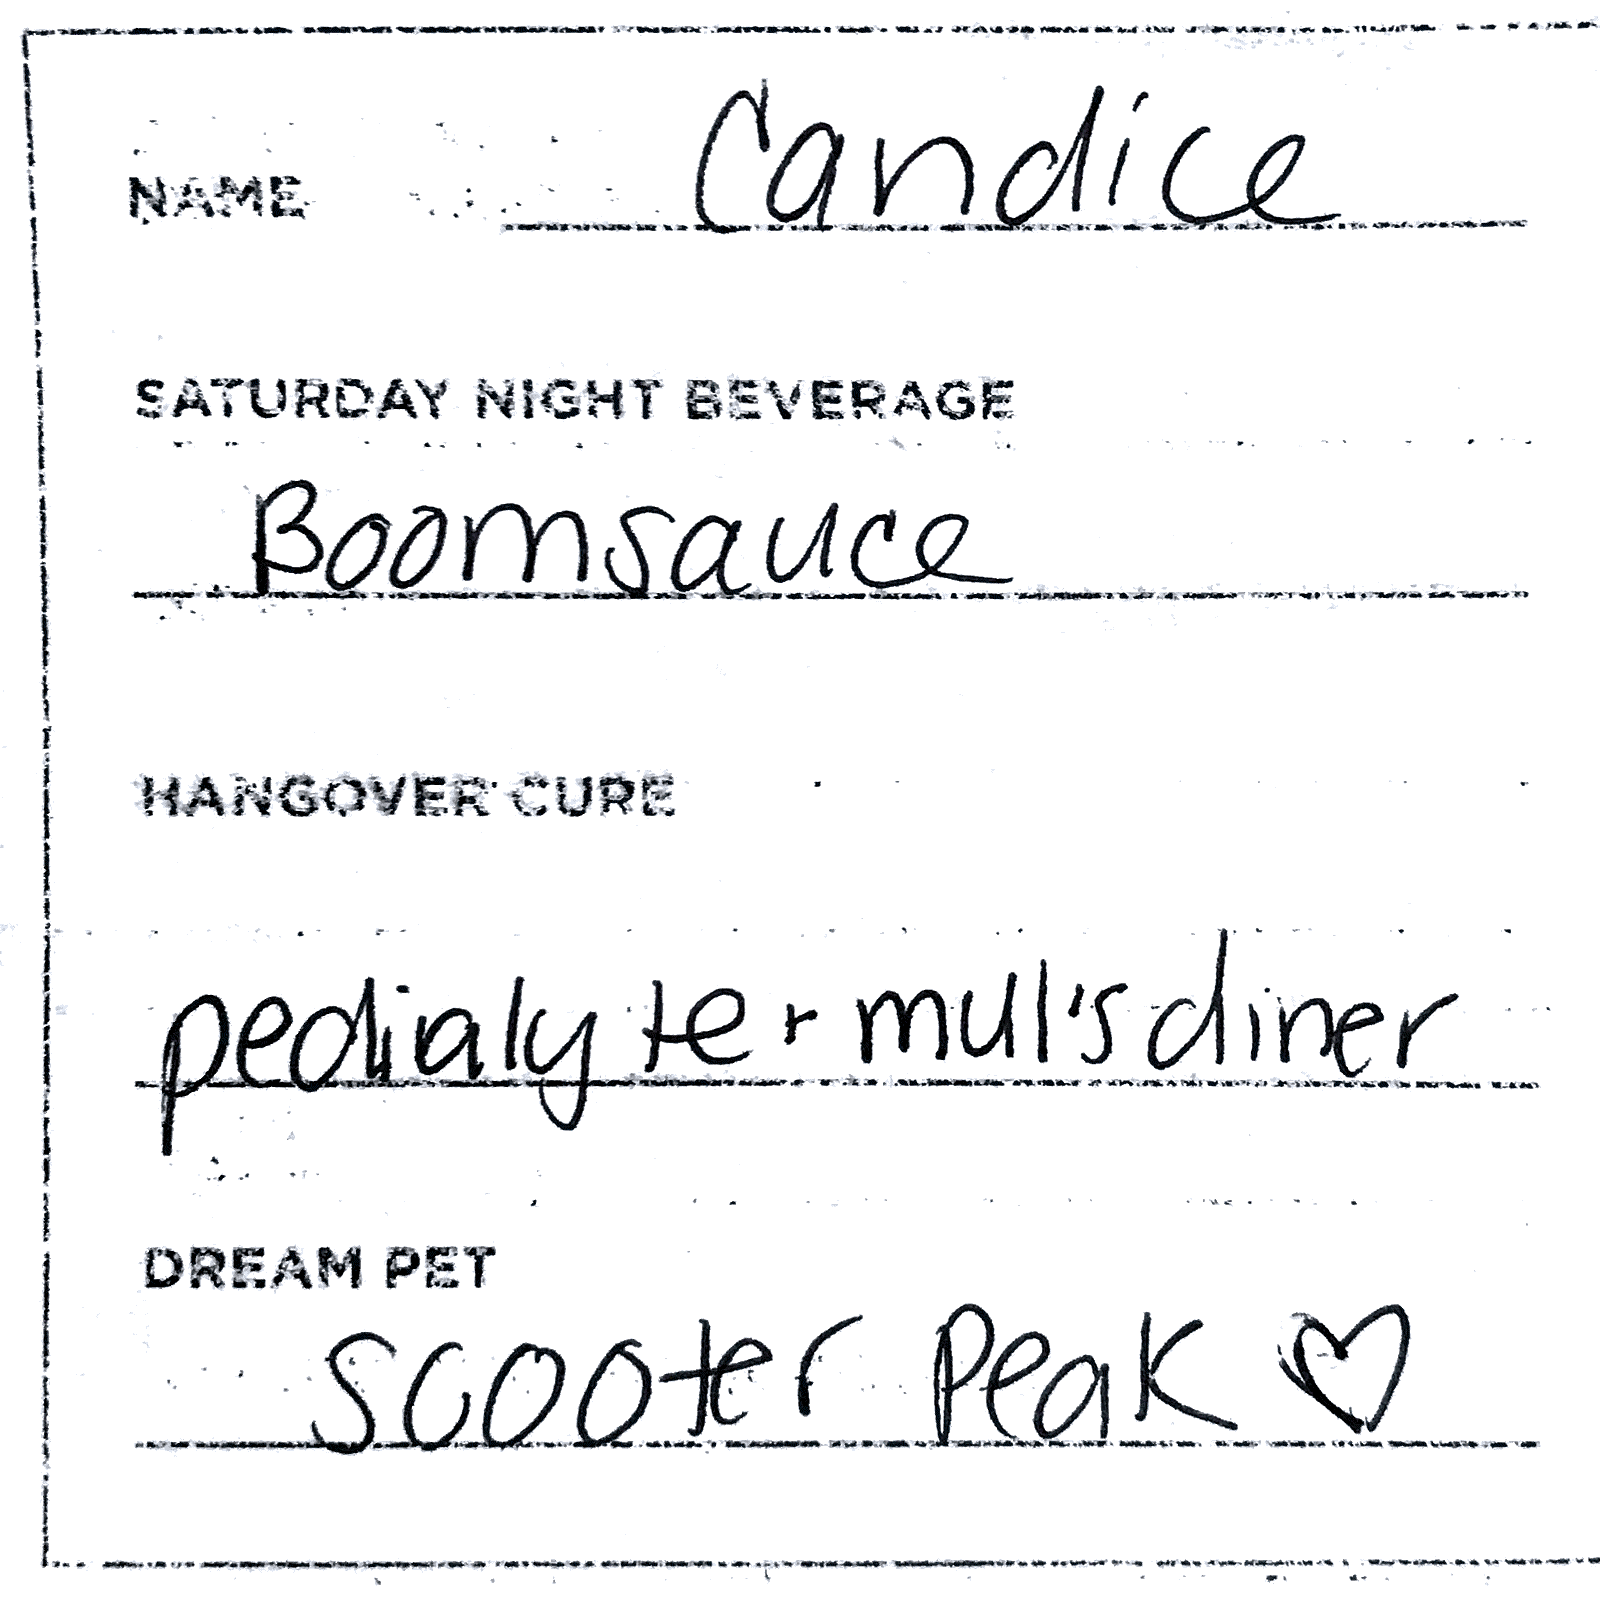 NAME Candice
SATURDAY NIGHT BEVERAGE
Boomsauce
HANGOVER CURE
pedialyte + mul's diner
DREAM PET
scooter peak ♡